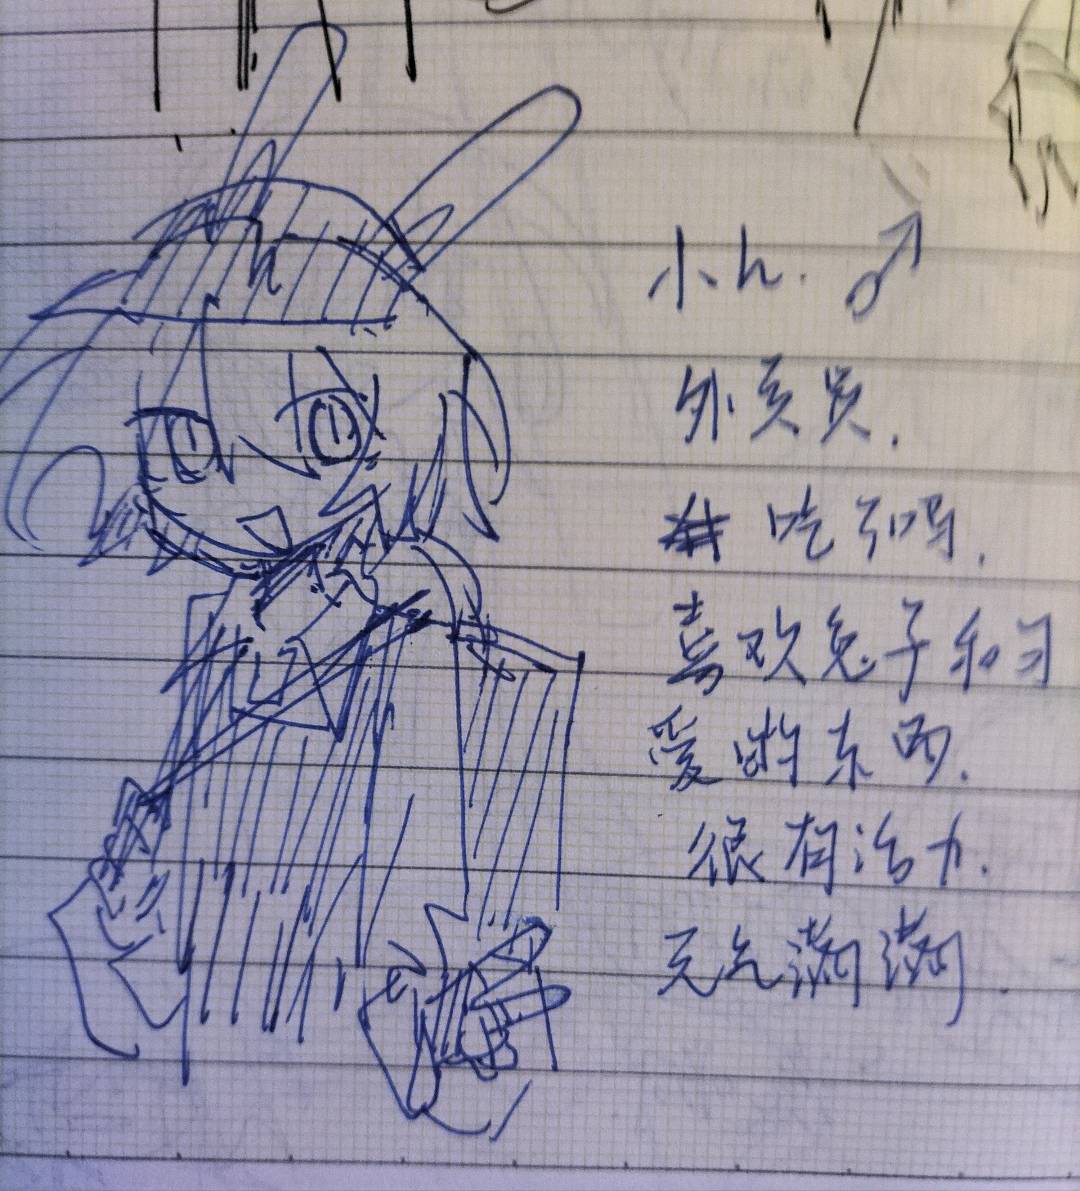 h
小h. ♂
外卖员.
吃了吗.
喜欢兔子和可
爱的东西.
很有活力.
元气满满.